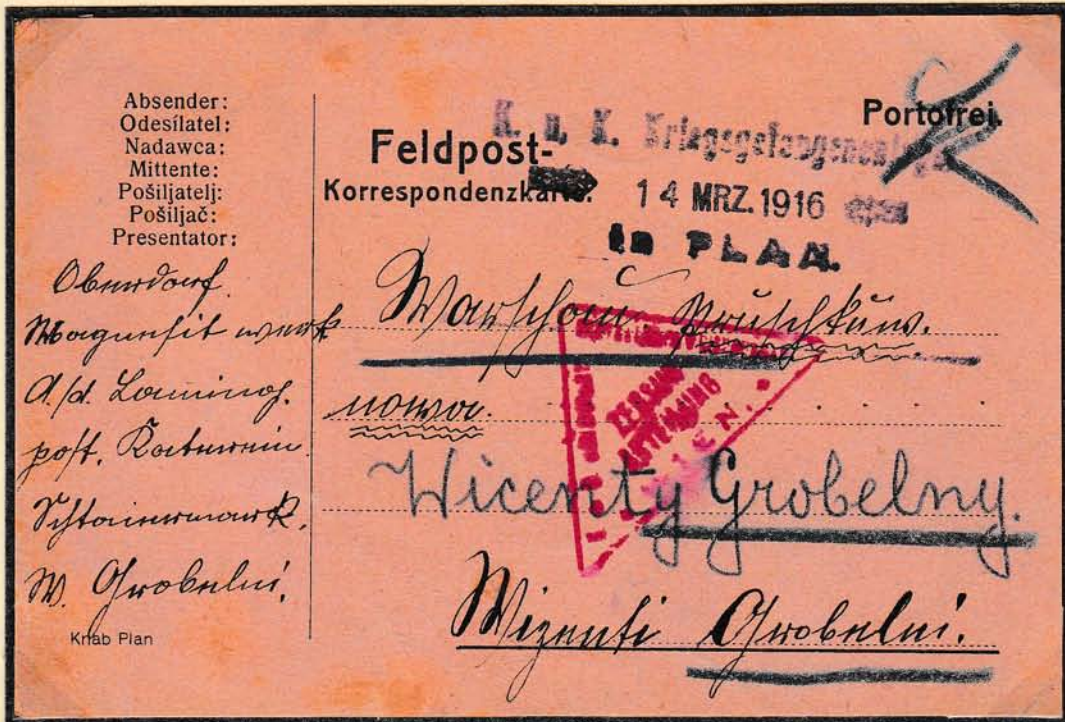 Absender:
Odesílatel:
Nadawca:
Mittente:
Pošiljatelj:
Pošiljač:
Presentator:
Oberdorf.
Magnesit werk
a/d. Laming.
post. Katerein
Schtaiermark.
W. Grobelni.
Knab Plan
Portofrei.
Feldpost-
Korrespondenzkarte.
K. u. K. Kriegsgefangenenlager
14 MRZ. 1916
in PLAN.
Warschau Pruschkuw.
nowa.
Wicenty Grobelny.
Wizenti Grobelni.